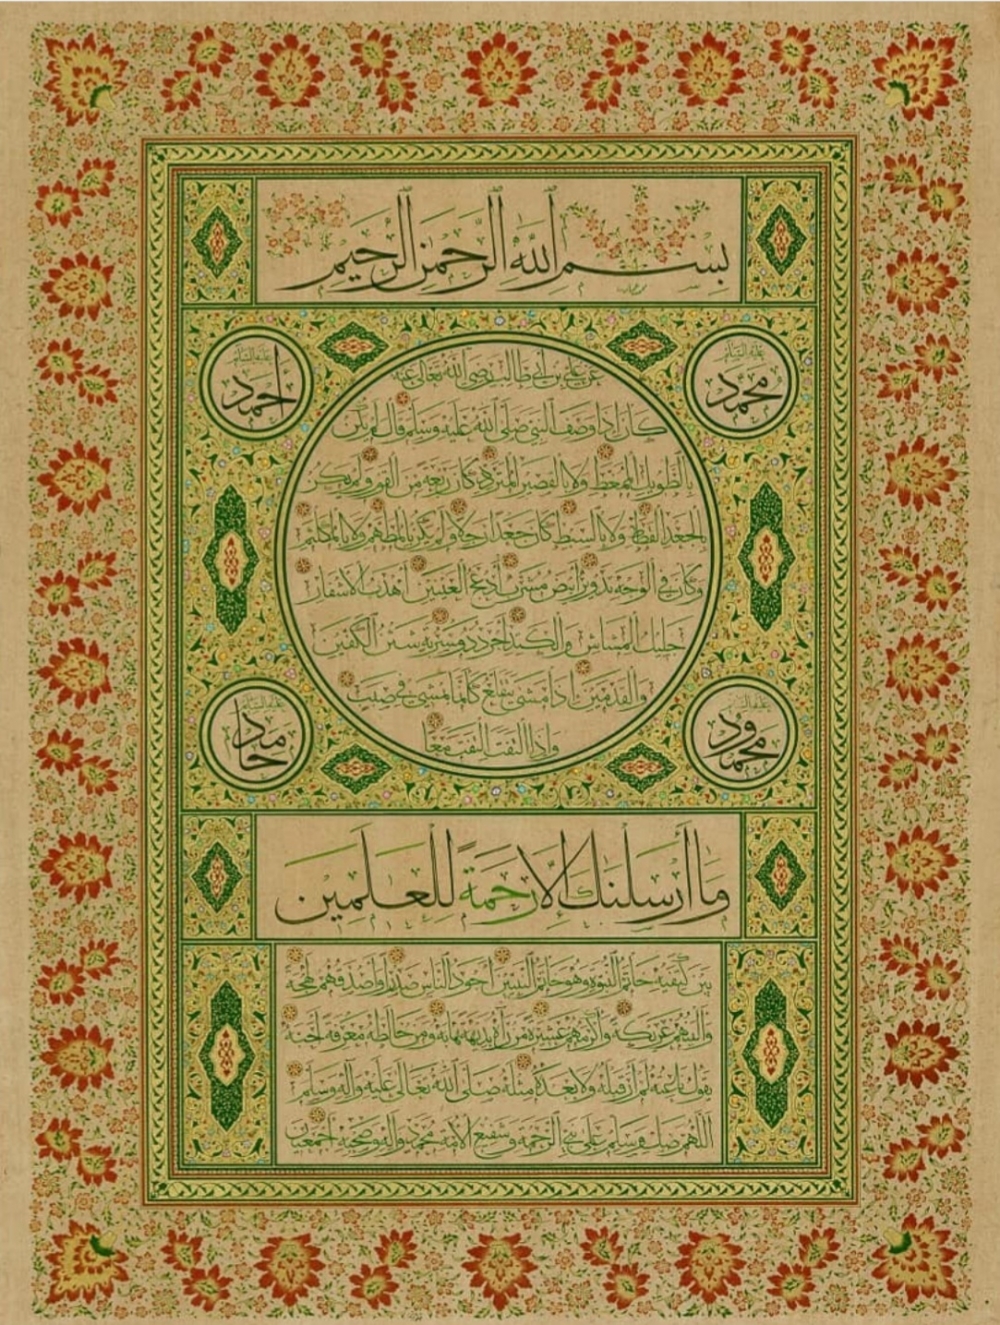 بسم الله الرحمن الرحيم
عليه السلام
محمد
عليه السلام
أحمد
عن علي بن أبي طالب رضي الله تعالى عنه
كان إذا وصف النبي صلى الله عليه وسلم قال لم يكن
بالطويل الممغط ولا بالقصير المتردد كان ربعة من القوم ولم يكن
بالجعد القطط ولا بالسبط كان جعدا رجلا ولم يكن بالمطهم ولا بالمكلثم
وكان في الوجه تدوير أبيض مشرب أدعج العينين أهدب الأشفار
جليل المشاش والكتد أجرد ذو مسربة شثن الكفين
والقدمين إذا مشى يتقلع كأنما يمشي في صبب
وإذا التفت التفت معا
محمود
حامد
وما أرسلنك إلا رحمة للعلمين
بين كتفيه خاتم النبوة وهو خاتم النبيين أجود الناس صدرا وأصدقهم لهجة
وألينهم عريكة وأكرمهم عشيرة من رآه بديهة هابه ومن خالطه معرفة أحبه
يقول ناعته لم أر قبله ولا بعده مثله صلى الله تعالى عليه وآله وسلم
اللهم صل وسلم على نبي الرحمة وشفيع الأمة محمد وآله وصحبه أجمعين